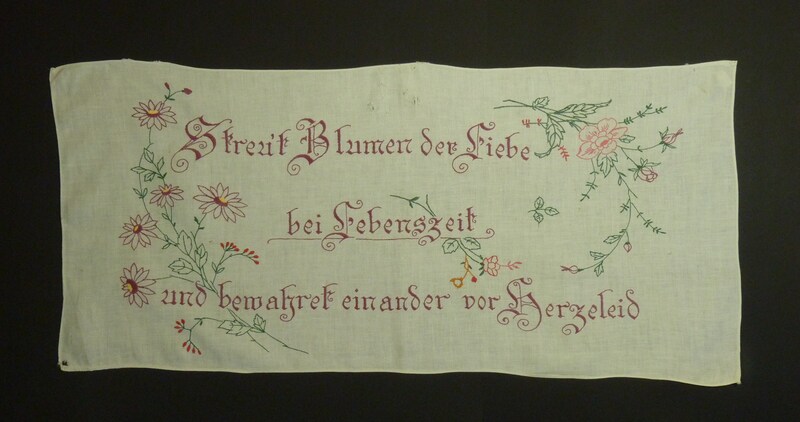 Streu't Blumen der Liebe
bei Lebenszeit
und bewahret einander vor Herzeleid